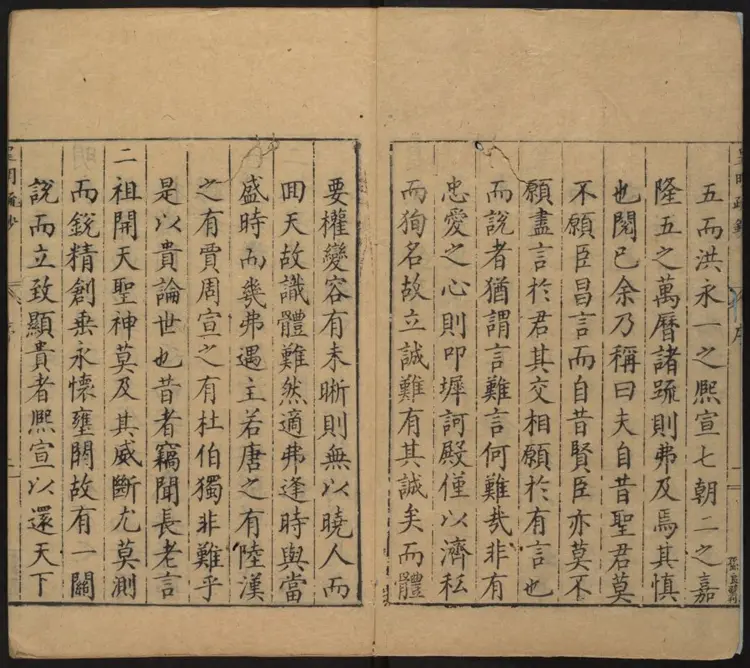 五而洪永一之熙宣七朝二之嘉
隆五之萬曆諸䟽則弗及焉其慎
也閱已余乃稱曰夫自昔聖君莫
不願臣昌言而自昔賢臣亦莫不
願盡言於君其交相願於有言也
而說者猶謂言難言何難㢤非有
忠愛之心則叩墀訶殿僅以濟私
而狥名故立誠難有其誠矣而體
要權變容有未晰則無以曉人而
囬天故識體難然適弗逢時與當
盛時而幾弗遇主若唐之有陸漢
之有賈周宣之有杜伯獨非難乎
是以貴論世也昔者竊聞長老言
二祖開天聖神莫及其威斷尤莫測
而銳精創垂永懷壅閼故有一關
說而立致顯貴者熙宣以還天下